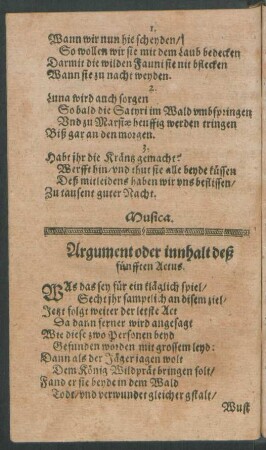 1.
Wann wir nun hie scheyden/
So wollen wir sie mit dem Laub bedecken
Darmit die wilden Fauni sie nit bflecken
Wann sie zu nacht weyden.
2.
Luna wird auch sorgen
So bald die Satyri im Wald vmbspringen
Vnd zu Marsiæ heuffig werden tringen
Biß gar an den morgen.
3.
Habt jhr die Kräntz gemacht?
Werfft hin/vnd thut sie alle beyde küssen
Deß mitleidens haben wir vns beflissen/
Zu tausent guter Nacht.
Musica.
Argument oder innhalt deß
fünfften Actus.
WAs das sey für ein kläglich spiel/
Secht jhr samptlich an disem ziel/
Jetzt folgt weiter der letste Act
Da dann ferner wird angesagt
Wie diese zwo Personen beyd
Gefunden worden mit grossem leyd:
Dann als der Jäger jagen wolt
Dem König Wildprät bringen solt/
Fand er sie beyde in dem Wald
Todt/vnd verwundet gleicher gstalt/
Wust